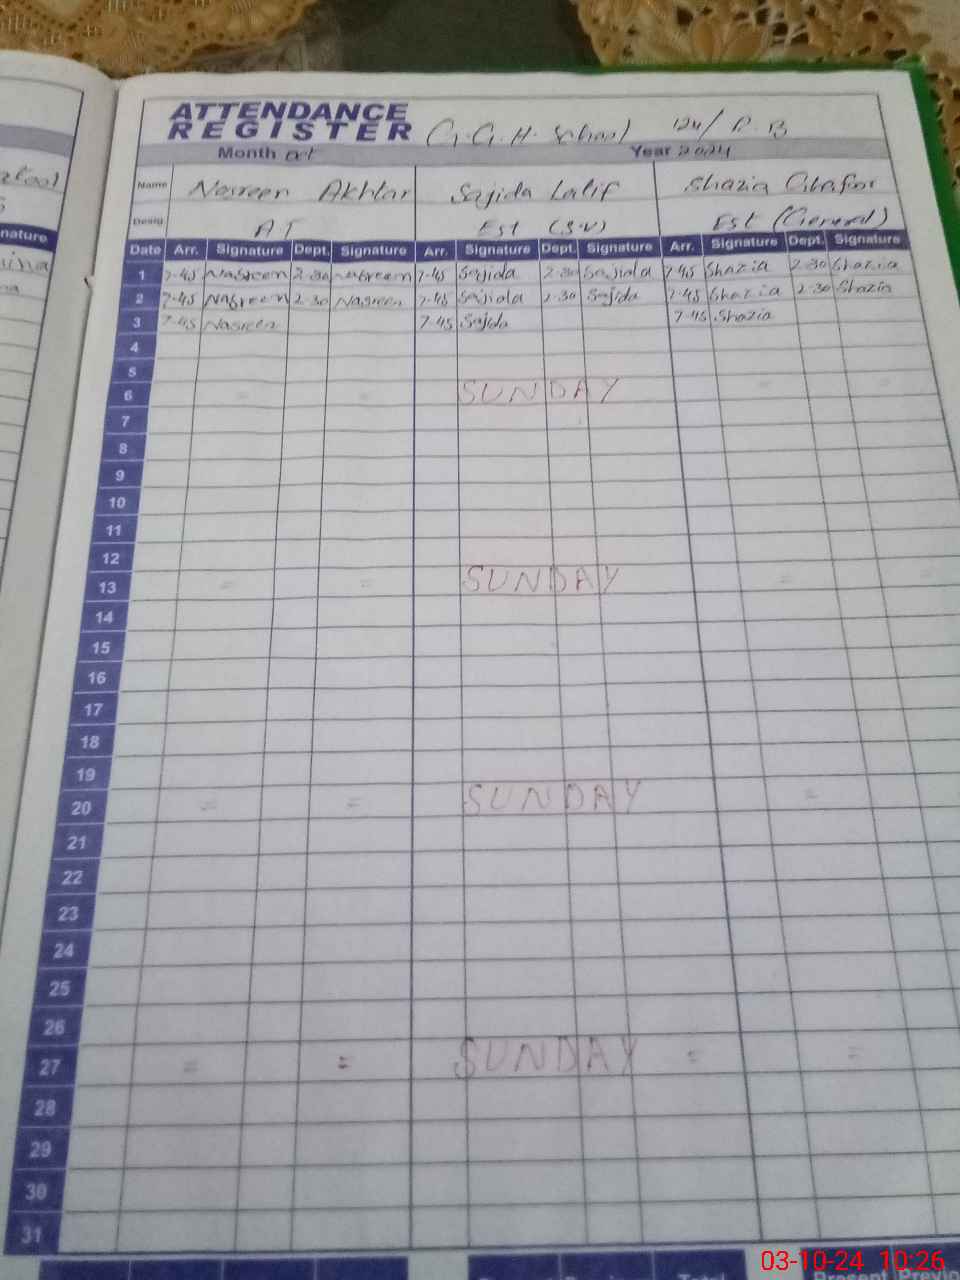 ATTENDANCE
REGISTER G.G.H. School 124/R.B
Month oct Year 2024
Name Nasreen Akhtar Sajida Latif Shazia Ghafoor
Desig AT Est (S.V) Est (General)
nature Date Arr. Signature Dept. Signature Arr. Signature Dept. Signature Arr. Signature Dept. Signature
1 7-45 Nasreen 2-30 Nasreen 7-45 Sajida 2-30 Sajida 7-45 Shazia 2-30 Shazia
2 7-45 Nasreen 2-30 Nasreen 7-45 Sajida 2-30 Sajida 7-45 Shazia 2-30 Shazia
3 7-45 Nasreen 7-45 Sajida 7-45 Shazia
4
5
6 = = SUNDAY = =
7
8
9
10
11
12
13 = = SUNDAY = =
14
15
16
17
18
19
20 = = SUNDAY =
21
22
23
24
25
26
27 = = SUNDAY = =
28
29
30
31
03-10-24 10:26